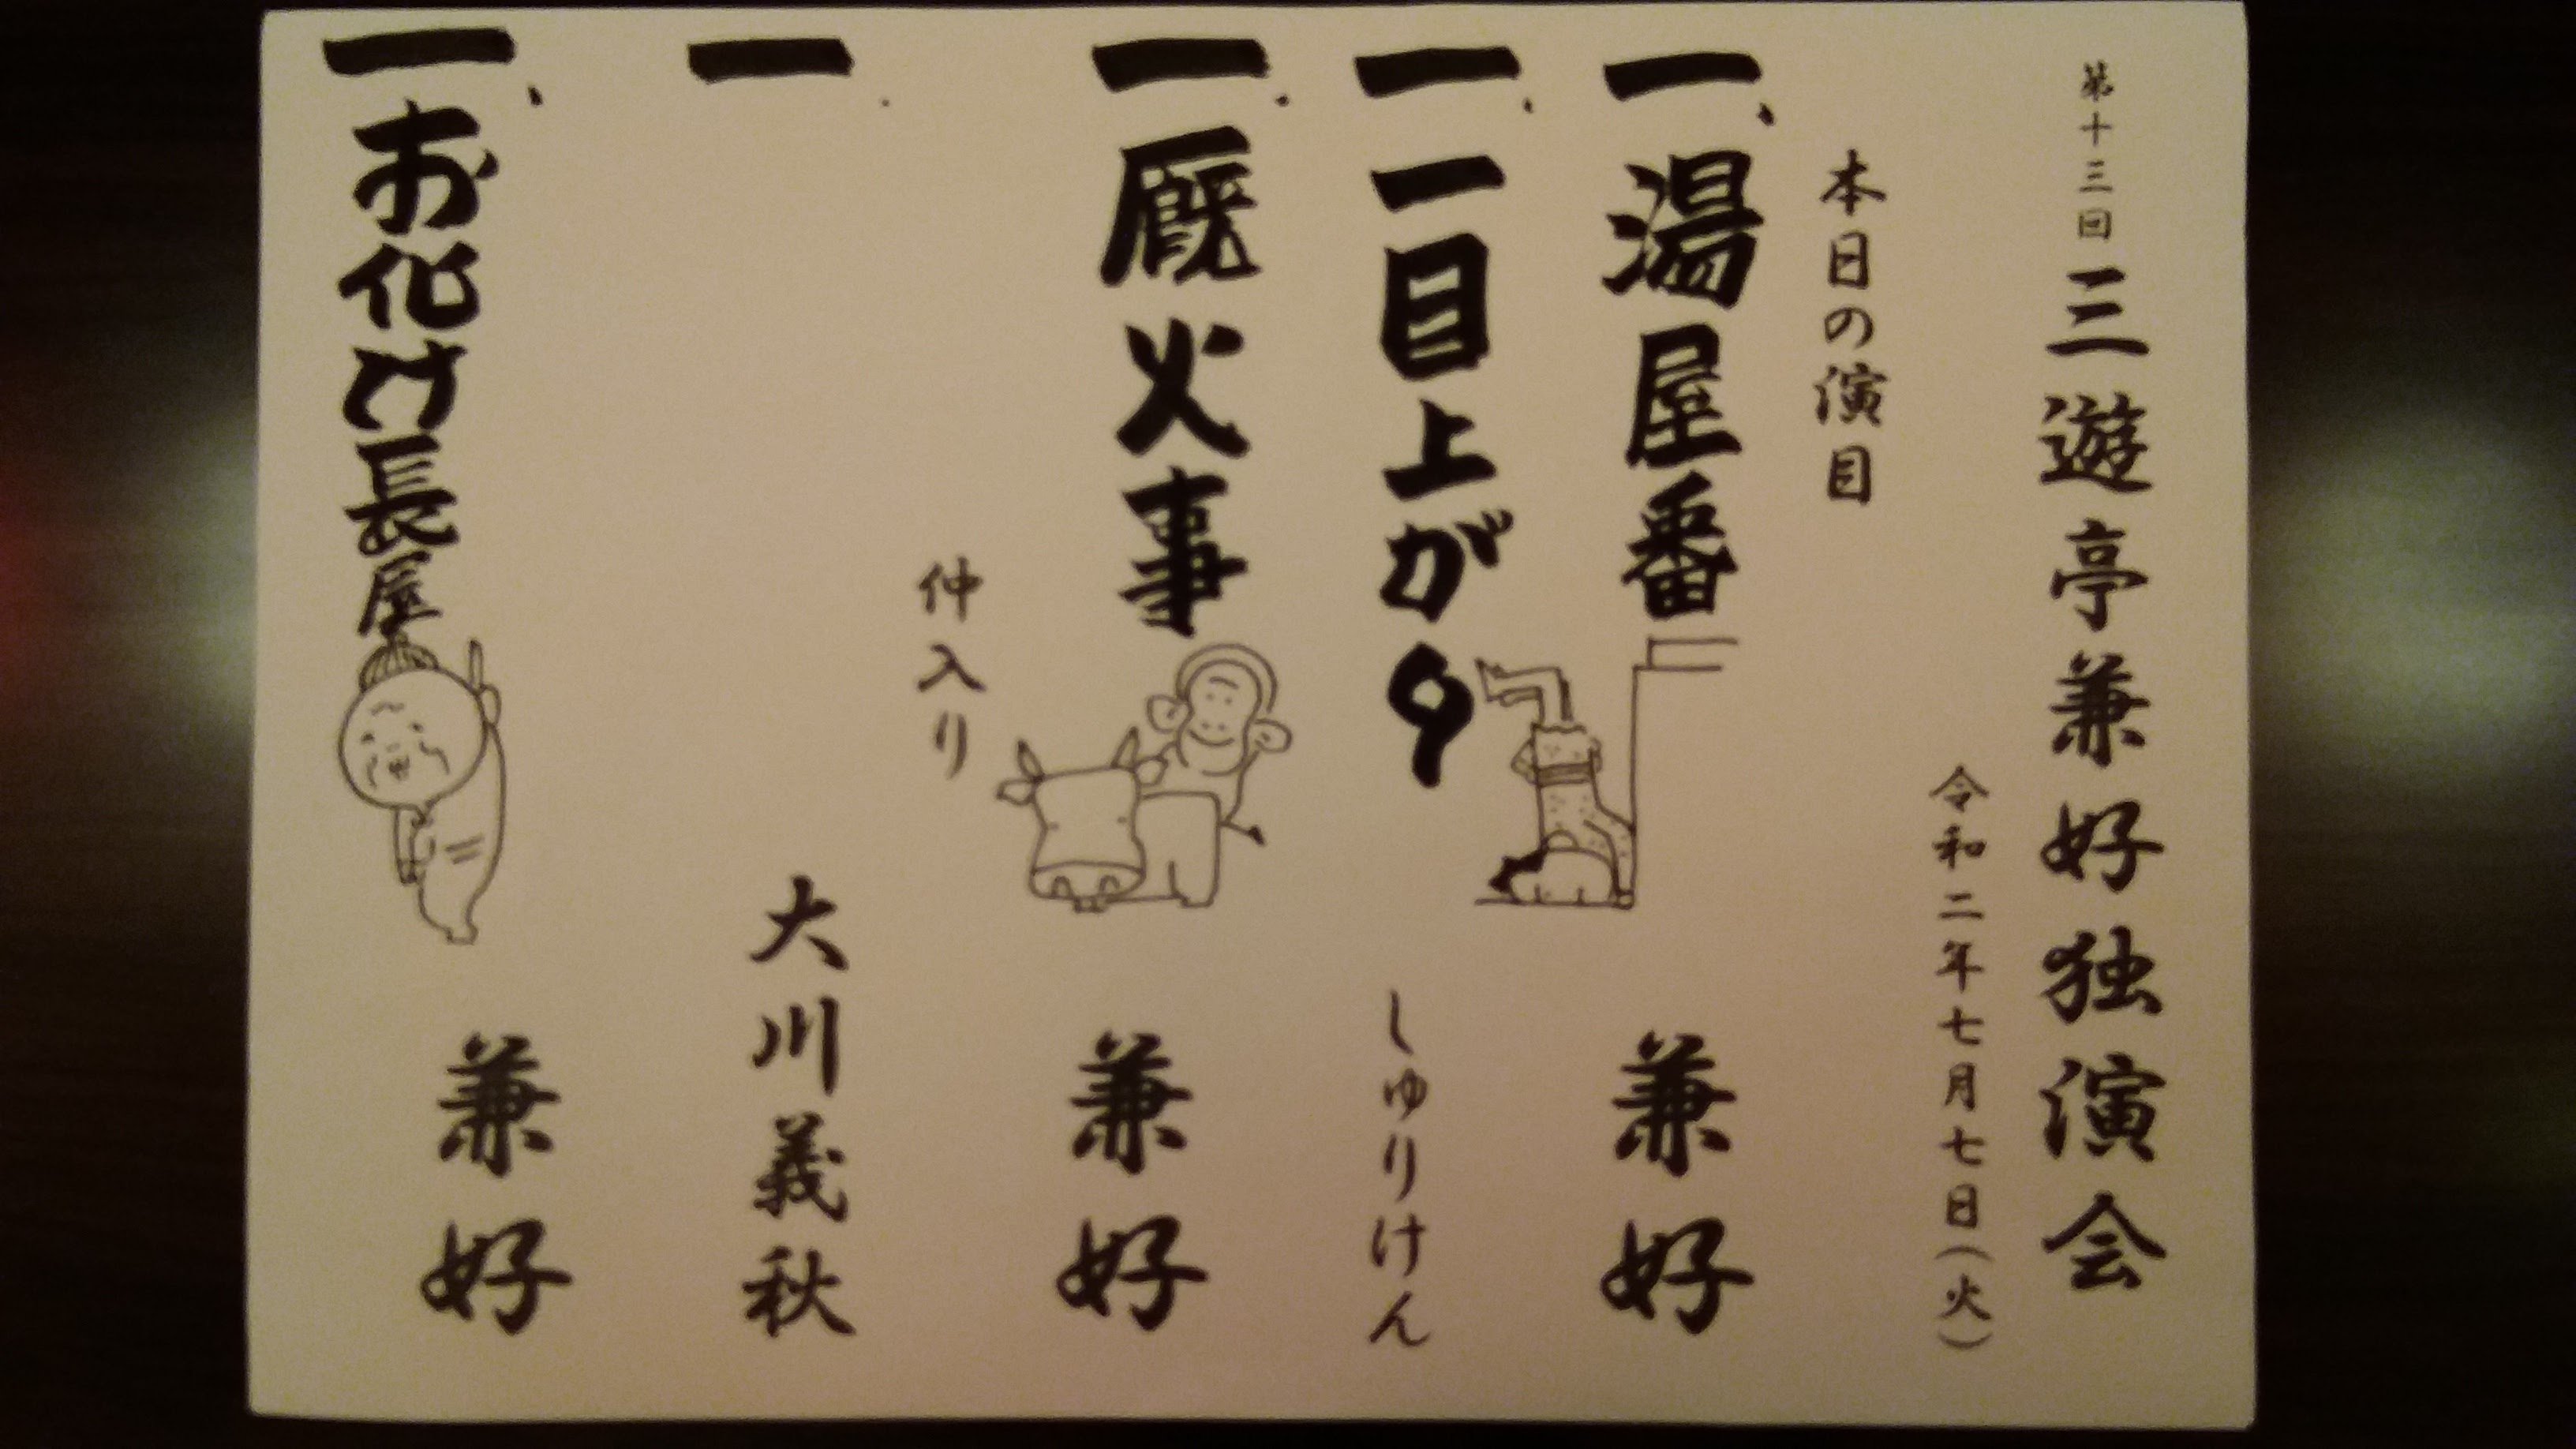 第十三回 三遊亭兼好独演会
令和二年七月七日(火)
本日の演目
一、湯屋番 兼好
一、一目上がり しゅりけん
一、厩火事 兼好
仲入り
一、 大川義秋
一、お化け長屋 兼好